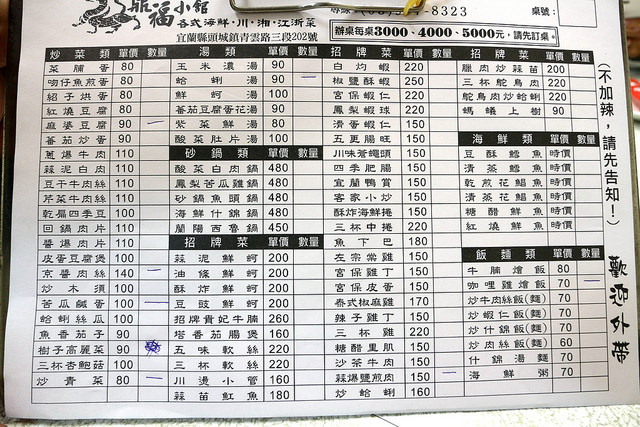 福小館
各式海鮮·川·湘·江浙菜
宜蘭縣頭城鎮青雲路三段202號
8323
桌號:
辦桌每桌3000、4000、5000元,請先訂桌。
炒菜類 單價 數量
菜脯蛋 80
吻仔魚煎蛋 80
紹子烘蛋 80
紅燒豆腐 80
麻婆豆腐 90
蕃茄炒蛋 90
蔥爆牛肉 110
蒜泥白肉 110
豆干牛肉絲 110
芹菜牛肉絲 110
乾扁四季豆 100
回鍋肉片 110
醬爆肉片 110
皮蛋豆腐煲 100
京醬肉絲 140
炒木須 100
苦瓜鹹蛋 100
蛤蜊絲瓜 100
魚香茄子 90
樹子高麗菜 90
三杯杏鮑菇 100
炒青菜 80
湯類 單價 數量
玉米濃湯 90
蛤蜊湯 90
鮮蚵湯 100
蕃茄豆腐蛋花湯 90
紫菜鮮湯 80
酸菜肚片湯 100
砂鍋類 單價 數量
酸菜白肉鍋 480
鳳梨苦瓜雞鍋 480
砂鍋魚頭鍋 480
海鮮什錦鍋 480
蘭陽西魯鍋 450
招牌菜 單價 數量
蒜泥鮮蚵 200
油條鮮蚵 200
酥炸鮮蚵 200
豆豉鮮蚵 200
招牌貴妃牛腩 260
塔香茄腸煲 160
五味軟絲 220
三杯軟絲 220
川燙小管 160
蒜苗魟魚 180
招牌菜 單價 數量
白灼蝦 220
椒鹽酥蝦 250
宮保蝦仁 150
鳳梨蝦球 220
滑蛋蝦仁 150
五更腸旺 150
川味蒼蠅頭 150
四季肥腸 150
宜蘭鴨賞 150
客家小炒 150
酥炸海鮮捲 150
三杯中捲 220
魚下巴 180
左宗棠雞 150
宮保雞丁 150
宮保皮蛋 150
泰式椒麻雞 170
辣子雞丁 150
三杯雞 220
糖醋里肌 150
沙茶牛肉 150
蒜爆鹽煎肉 150
炒蛤蜊 160
招牌菜 單價 數量
臘肉炒蒜苗 200
三杯鴕鳥肉 220
鴕鳥肉炒蛤蜊 220
螞蟻上樹 90
海鮮類 單價 數量
豆酥鱈魚 時價
清蒸鱈魚 時價
乾煎花鯧魚 時價
清蒸花鯧魚 時價
糖醋鮮魚 時價
紅燒鮮魚 時價
飯麵類 單價 數量
牛腩燴飯 80
咖哩雞燴飯 70
炒牛肉絲飯(麵) 70
炒蝦仁飯(麵) 70
炒什錦飯(麵) 70
炒肉絲飯(麵) 60
什錦湯麵 70
海鮮粥 70
(不加辣,請先告知!)
歡迎外帶